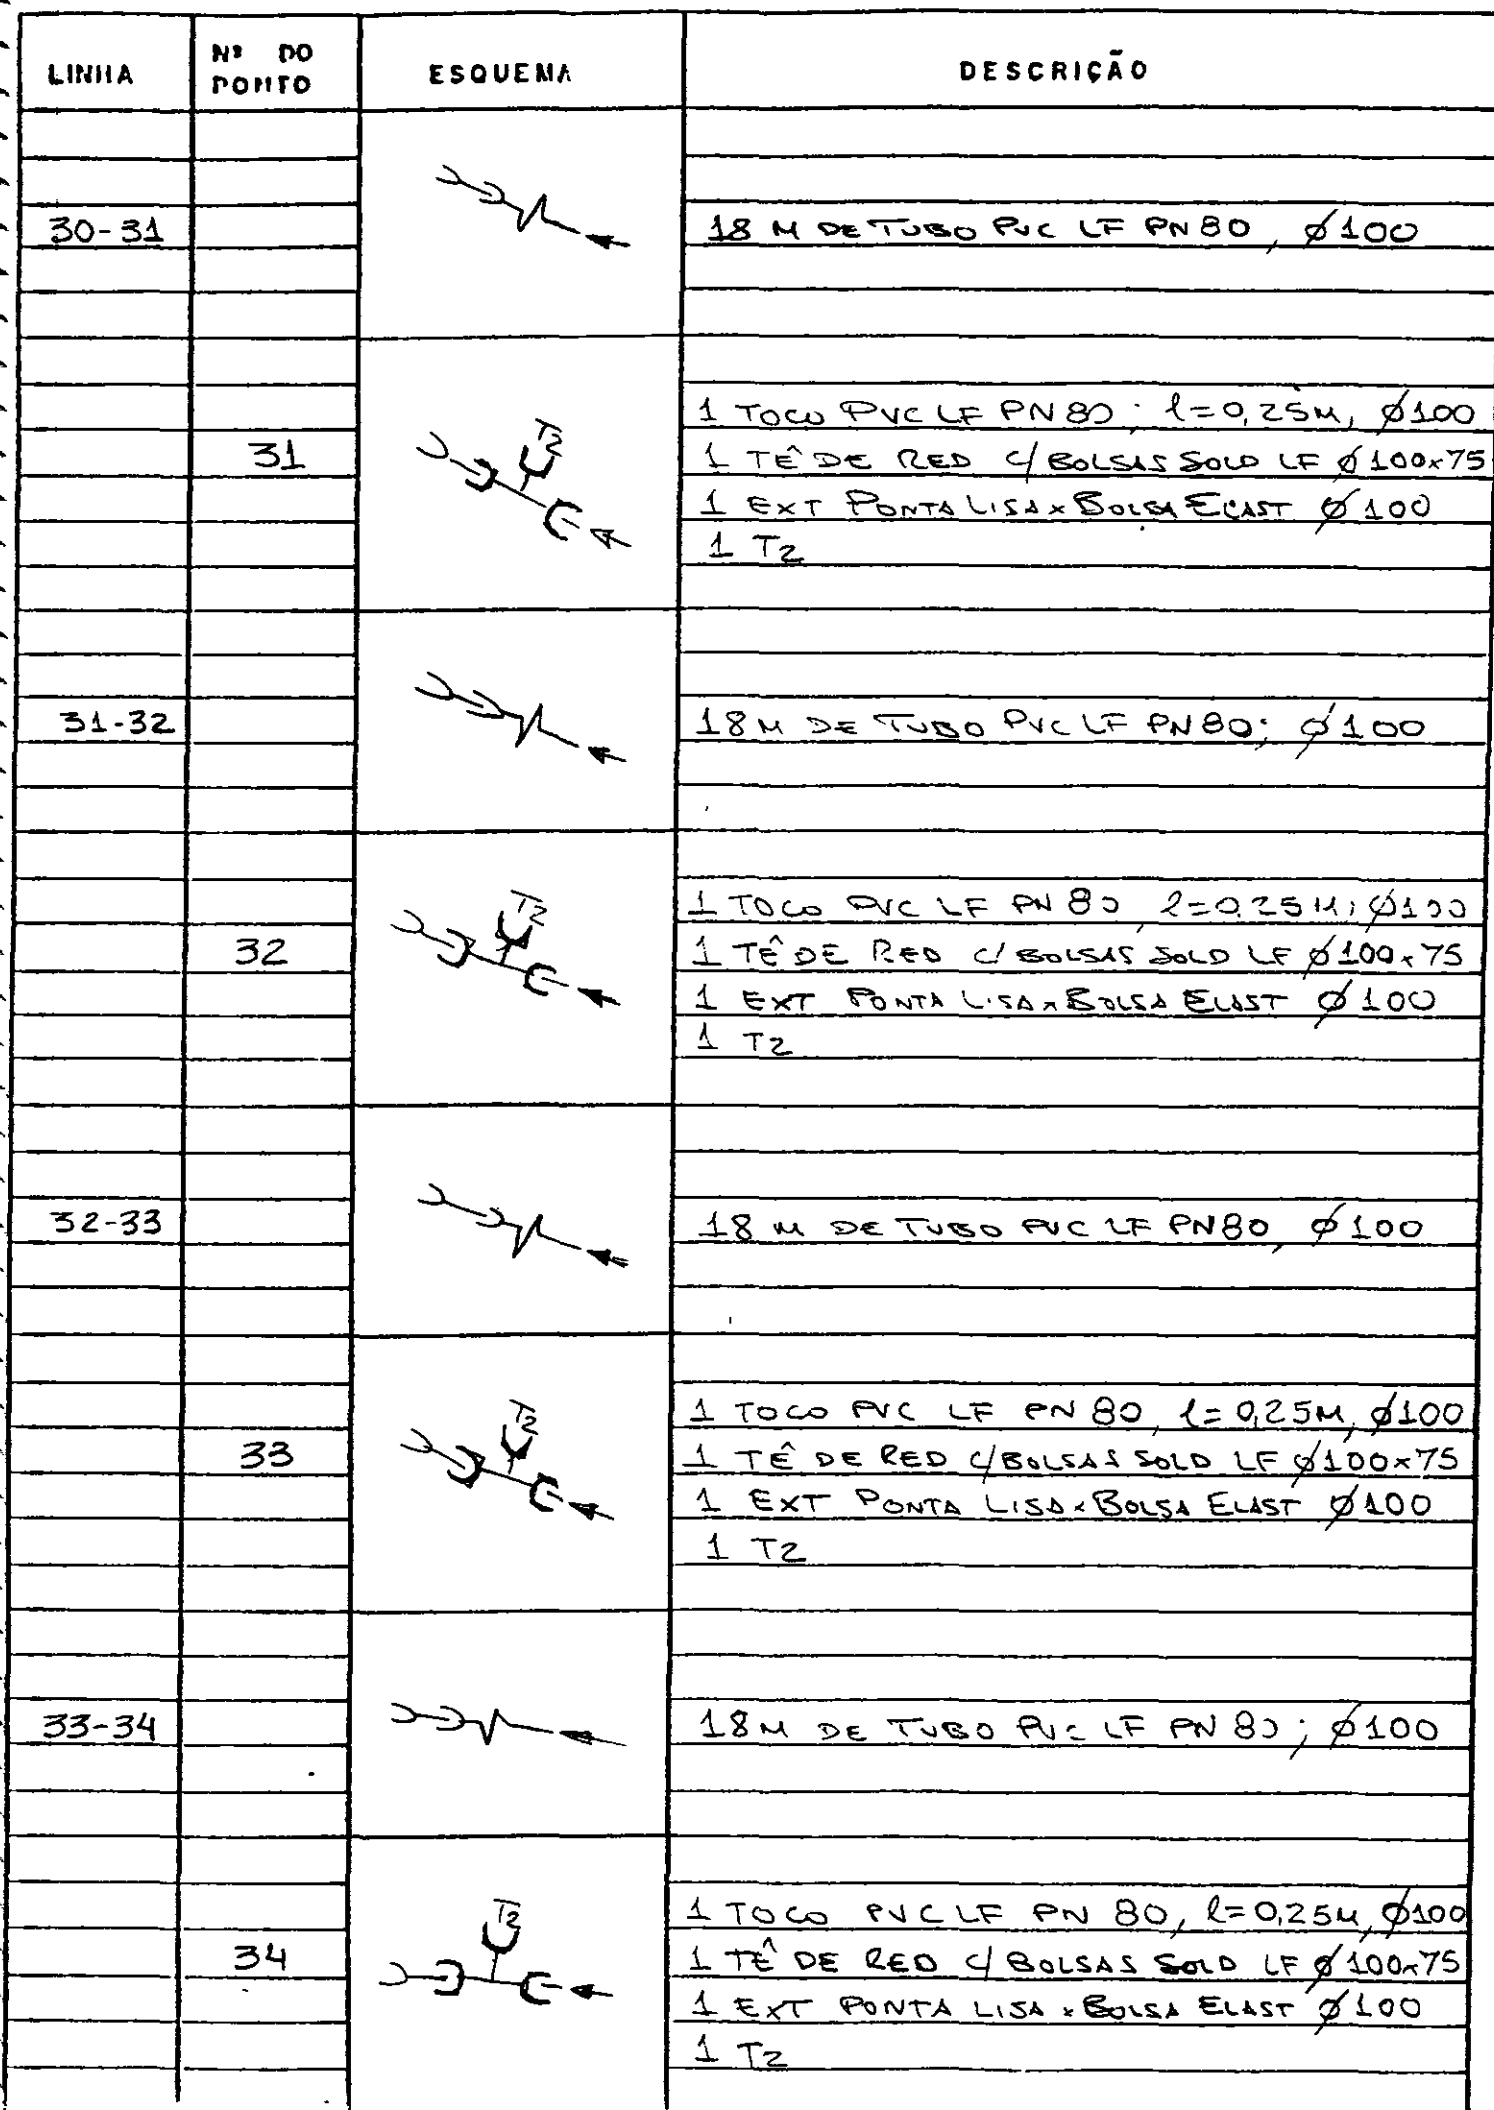 LINHA
Nº DO PONTO
ESQUEMA
DESCRIÇÃO
30-31
18 M DE TUBO PVC LF PN 80, Ø100
T2
31
1 TOCO PVC LF PN 80; l=0,25M, Ø100
1 TÊ DE RED C/BOLSAS SOLD LF Ø100x75
1 EXT PONTA LISA x BOLSA ELAST Ø100
1 T2
31-32
18 M DE TUBO PVC LF PN 80; Ø100
T2
32
1 TOCO PVC LF PN 80 l=0,25M; Ø100
1 TÊ DE RED C/BOLSAS SOLD LF Ø100x75
1 EXT PONTA LISA x BOLSA ELAST Ø100
1 T2
32-33
18 M DE TUBO PVC LF PN80, Ø100
T2
33
1 TOCO PVC LF PN 80, l=0,25M, Ø100
1 TÊ DE RED C/BOLSAS SOLD LF Ø100x75
1 EXT PONTA LISA x BOLSA ELAST Ø100
1 T2
33-34
18M DE TUBO PVC LF PN 80; Ø100
T2
34
1 TOCO PVC LF PN 80, l=0,25M, Ø100
1 TÊ DE RED C/BOLSAS SOLD LF Ø100x75
1 EXT PONTA LISA x BOLSA ELAST Ø100
1 T2